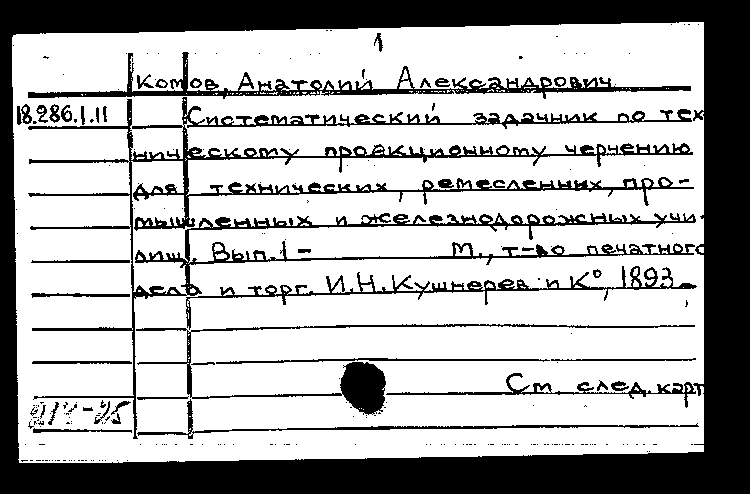 1
Комов, Анатолий Александрович
18.286.1.11 Систематический задачник по тех
ническому проэкционному черчению
для технических, ремесленных, про-
мышленных и железнодорожных учи-
лищ. Вып. 1 - М., т-во печатного
дела и торг. И.Н.Кушнерев и К°, 1893 -
См. след. карт